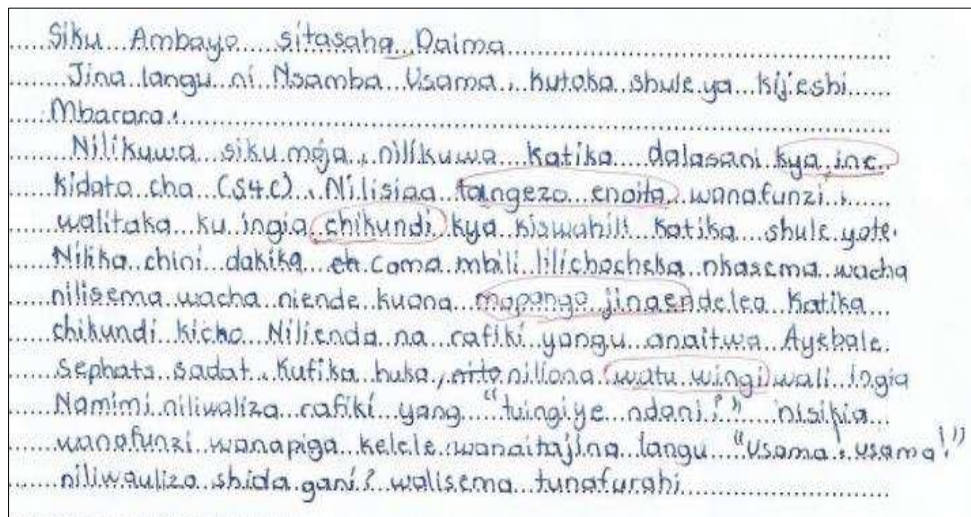 Siku Ambayo sitasaha Daima
Jina langu ni Nsamba Usama, kutoka shule ya kijeshi
Mbarara.
Nilikuwa siku moja, nilikuwa katika dalasani kya ine
kidato cha (S4C). Nilisiaa tangezo enaita wanafunzi,
walitaka ku ingia chikundi kya kiswahili katika shule yote.
Nilika chini dakika coma mbili lilichocheka nkasema wacha
nilisema wacha niende kuona mopango jinaendelea katika
chikundi kicho Nilienda na rafiki yangu anaitwa Ayebale
Sephats sadat. Kufika huko, niliona watu wingi wali ingia
Namimi niliwaliza rafiki yang "tuingiye ndani?" nisikia
wanafunzi wanapiga kelele wanaitajina langu "Usama, usama!"
niliwauliza shida gani? walisema tunafurahi